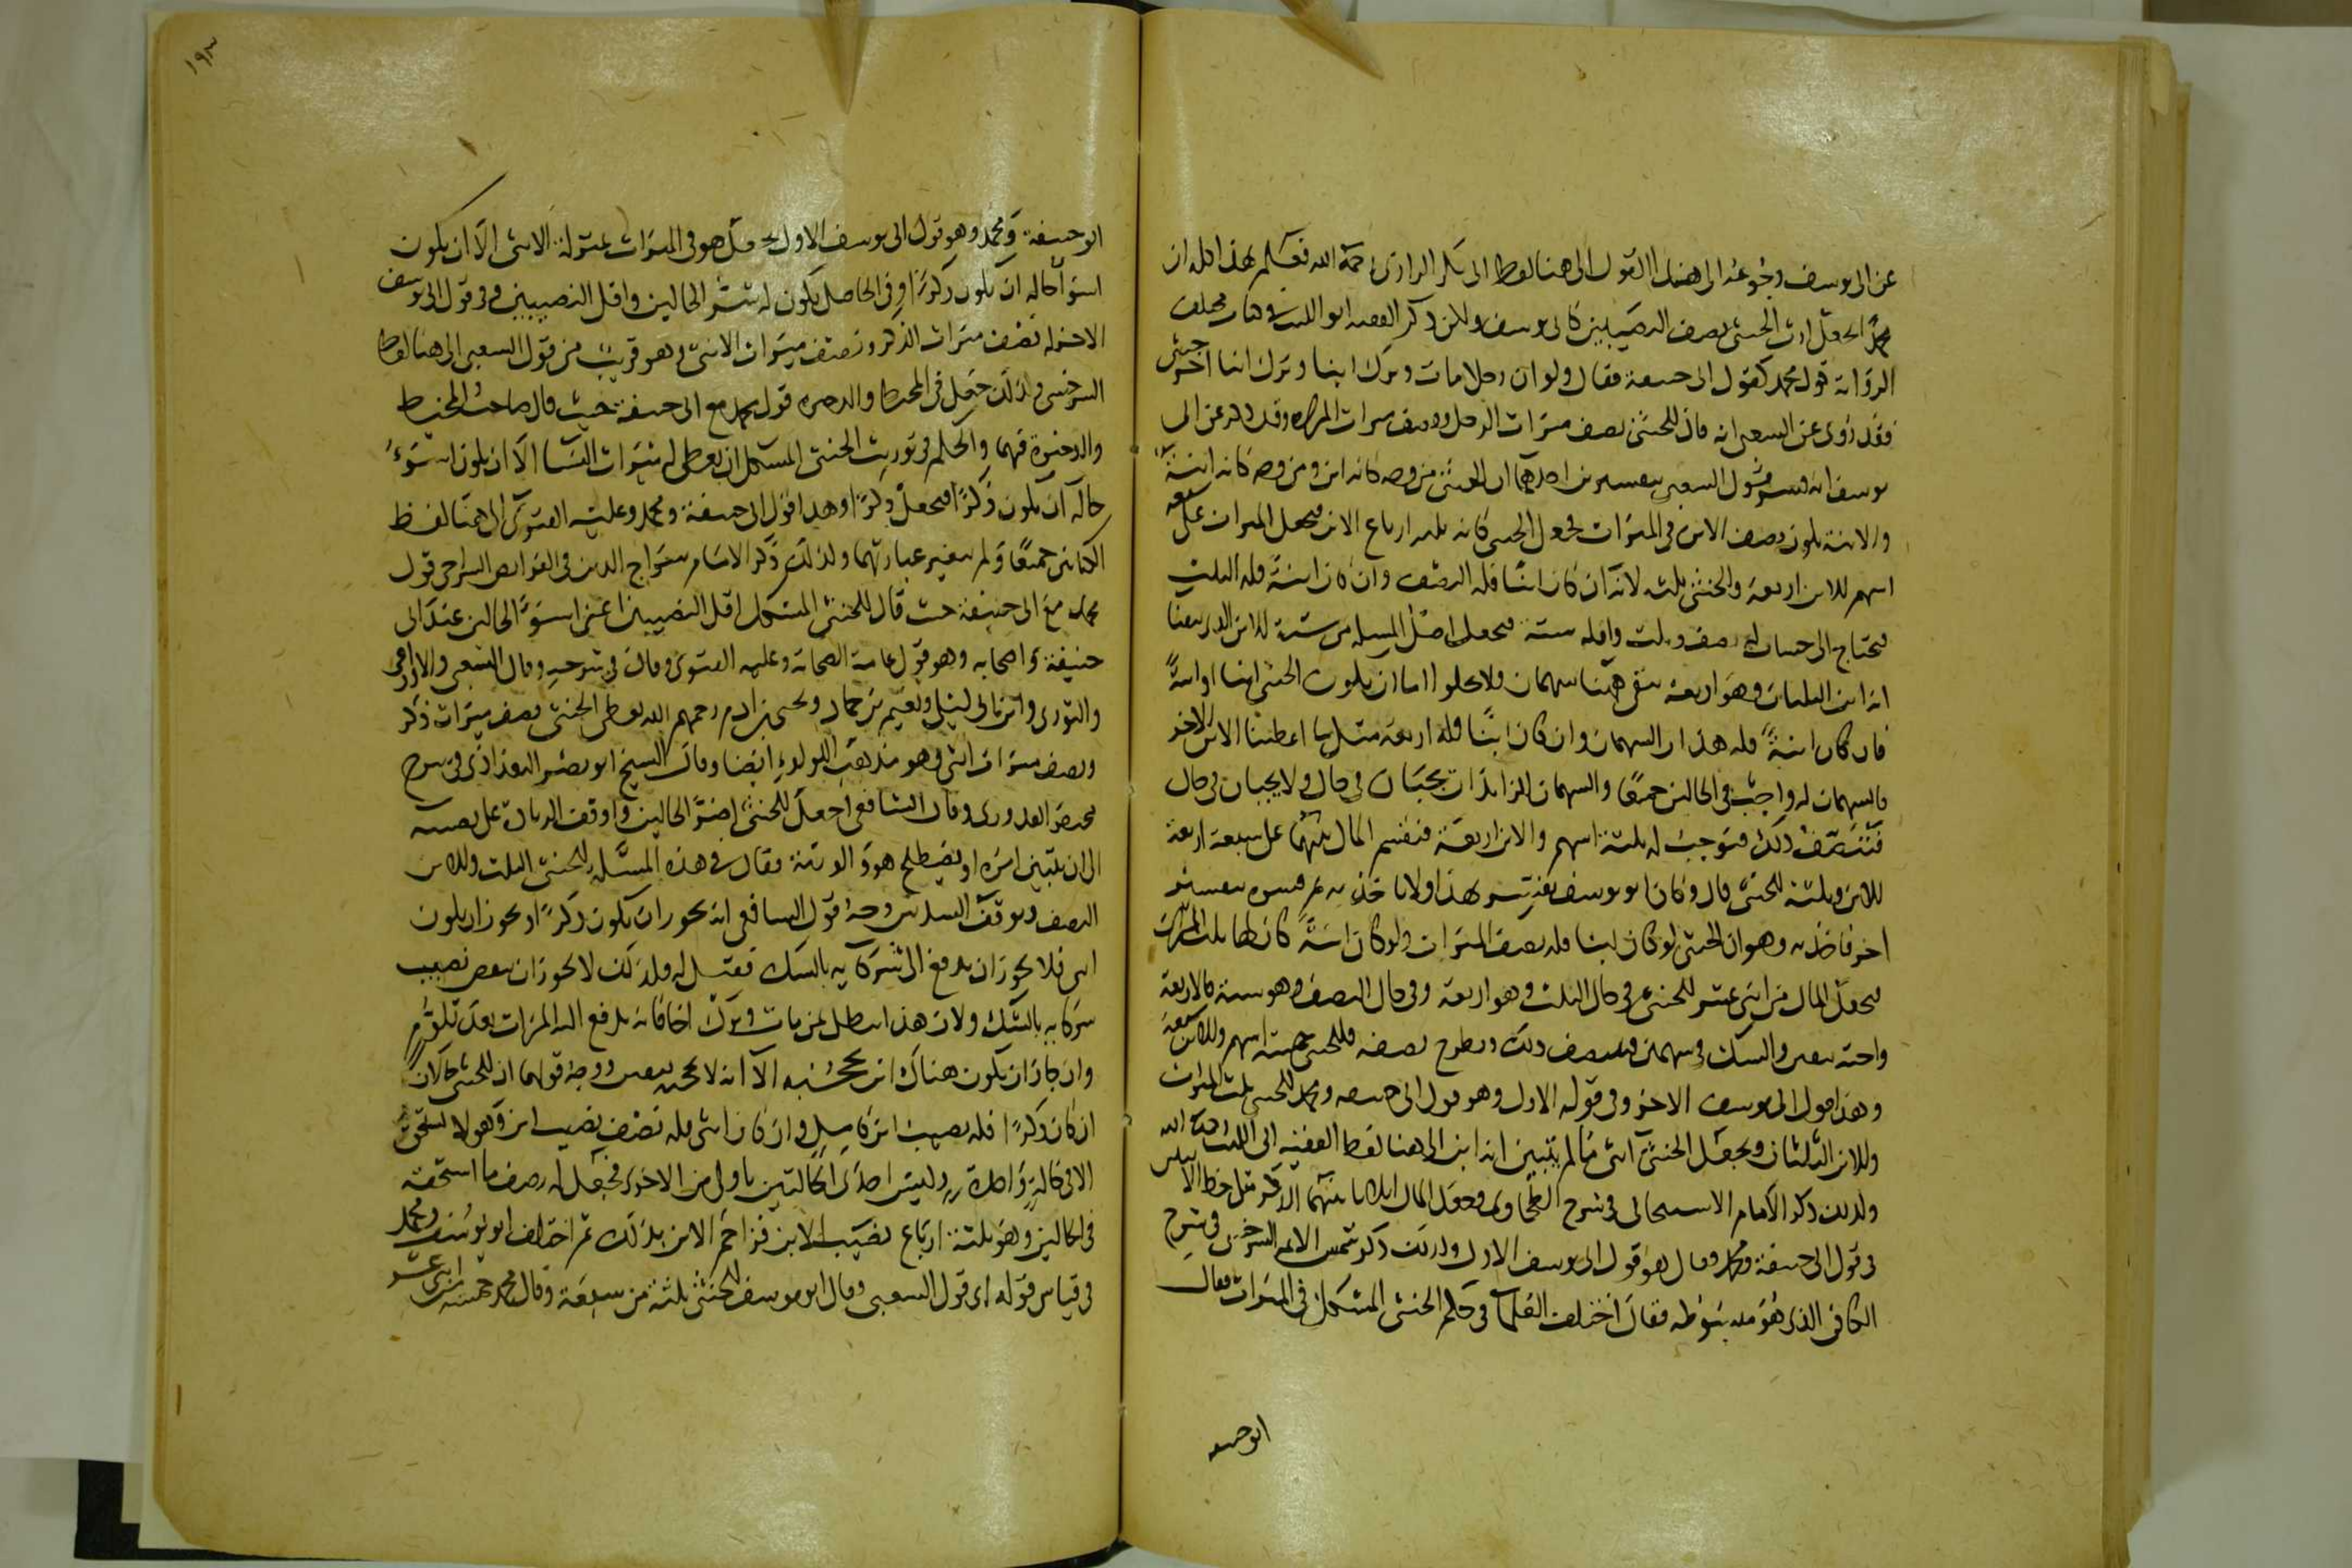 عن ابي يوسف رجوعه الى هذا القول الى هنا لفظ ابي بكر الرازي رحمة الله فعلم بهذا كله ان
محمدا يجعل ارث الخنثى نصف النصيبين كابي يوسف ولكن ذكر الفقيه ابو الليث في كتاب مختلف
الرواية قول محمد كقول ابي حنيفة فقال ولو ان رجلا مات وترك ابنا وترك ابنا اخر خنثى
فقد روى عن الشعبي انه قال للخنثى نصف ميراث الرجل ونصف ميراث المراة وقد ذكر عن ابي
يوسف انه فسر قول الشعبي بتفسيرين احدهما ان الخنثى من وجه كانه ابن ومن وجه كانه ابنة
والابنة يكون نصف الابن في الميراث فجعل الخنثى كانه ثلثة ارباع الابن فيجعل الميراث على سبعة
اسهم للابن اربعة وللخنثى ثلث لانه ان كان ابنا فله النصف وان كان ابنة فله الثلث
فيحتاج الى حساب له نصف وثلث واقله ستة فيجعل اصل المسئلة من ستة للابن الذي تيقنا
انه ابن الثلثان وهو اربعة بقي هنا سهمان ولا يخلوا اما ان يكون الخنثى ابنا او ابنة
فان كان ابنة فله هذان السهمان وان كان ابنا فله اربعة مثل ما اعطينا الابن الاخر
فالسهمان له واجب في الحالين جميعا والسهمان الزايدان يجبان في حال ولا يجبان في حال
فتنصف ذلك فيوجب له ثلثة اسهم وللابن اربعة فنقسم المال بينهما على سبعة اربعة
للابن وثلثة للخنثى قال وكان ابو يوسف يفسر بهذا اولا ما خذ به ثم فسره بتفسير
اخر فاخذ به وهو ان الخنثى لو كان ابنا فله نصف الميراث ولو كان ابنة كان لها ثلث الميراث
فيجعل المال من اثنى عشر للخنثى في حال الثلث وهو اربعة وفي حال النصف وهو ستة فالاربعة
واجبة بيقين والشك في سهمين فينصف ذلك ويطرح نصفه فللخنثى خمسة اسهم وللابن سبعة
وهذا قول ابي يوسف الاخر وفي قوله الاول وهو قول ابي حنيفة ومحمد للخنثى ثلث الميراث
وللابن الثلثان ويجعل الخنثى انثى ما لم يتبين انه ابن الى هنا لفظ الفقيه ابي الليث رحمة الله
ولذلك ذكر الامام الاسبيجابي في شرح الطحاوي وجعل المال اثلاثا بينهما للذكر مثل حظ الانثيين
في قول ابي حنيفة ومحمد وقال هو قول ابي يوسف الاول ولذلك ذكر شمس الائمة السرخسي في شرح
الكافي الذي هو مبسوطه فقال اختلف العلما في حكم الخنثى المشكل في الميراث فقال
ابو حنيفة
١٩٣
ابو حنيفة ومحمد وهو قول ابي يوسف الاول يجعل هو في الميراث بمنزلة الانثى الا ان يكون
اسوأ حاله ان يكون ذكرا وفي الحاصل يكون له شر الحالين واقل النصيبين وفي قول ابي يوسف
الاخر له نصف ميراث الذكر ونصف ميراث الانثى وهو قريب من قول الشعبي الى هنا لفظ
السرخسي ولذلك جعل في المحيط والذخيرة قول محمد مع ابي حنيفة حيث قال صاحب المحيط
والذخيرة فيهما والحكم في توريث الخنثى المشكل ان يعطى له ميراث النسا الا ان يكون اسوء
حاله ان يكون ذكرا فيجعل ذكرا وهذا قول ابي حنيفة ومحمد وعليه الفتوى الى هنا لفظ
الكتابين جميعا ولم يتغير عبارتهما ولذلك ذكر الامام سراج الدين في الفرايض السراجي قول
محمد مع ابي حنيفة حيث قال للخنثى المشكل اقل النصيبين اعني اسوء الحالين عند ابي
حنيفة واصحابه وهو قول عامة الصحابة وعليه الفتوى وقال في شرحه وقال الشعبي والاوزاعي
والثوري وابن ابي ليلى ونعيم بن حماد ويحيى بن ادم رحمهم الله يعطى الخنثى نصف ميراث ذكر
ونصف ميراث انثى وهو مذهب اللولوي ايضا وقال الشيخ ابو نصر البغدادي في شرح
مختصر القدوري وقال الشافعي اجعل للخنثى اضر الحالين واوقف الزيادة على نصيبه
الى ان يتبين امره او يصطلح هو والورثة فقال في هذه المسئلة للخنثى الثلث وللابن
النصف ويوقف السدس وجه قول الشافعي انه يجوز ان يكون ذكرا ويجوز ان يكون
انثى فلا يجوز ان يدفع الى شركايه بالشك فقيل له ولذلك لا يجوز ان ينقص نصيب
شركايه بالشك ولان هذا يبطل بمن مات وترك اخا فانه يدفع اليه الميراث بعد تلوم
وان جاز ان يكون هناك ابن يحجبه الا انه لا يحجب بيقين ووجه قولهما ان للخنثى حالان
ان كان ذكرا فله نصيب ابن كامل وان كان انثى فله نصف نصيب ابن وهو لا يستحق
الا في حالة واحدة وليس احدى الحالتين باولى من الاخرى فيجعل له نصف ما استحقه
في الحالين وهو ثلثة ارباع نصيب الابن فزاحم الابن بذلك ثم اختلف ابو يوسف ومحمد
في قياس قوله اى قول الشعبي وقال ابو يوسف للخنثى ثلثة من سبعة وقال محمد خمسة من اثنى عشر